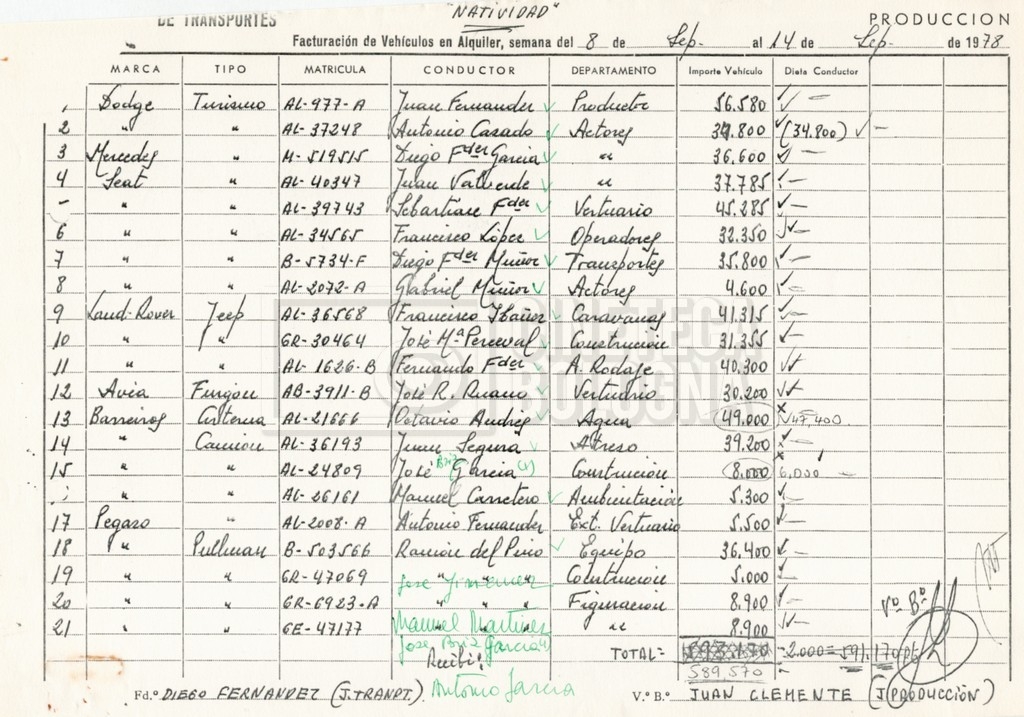 "NATIVIDAD"
DE TRANSPORTES
PRODUCCION
Facturación de Vehículos en Alquiler, semana del 8 de Sep. al 14 de Sep. de 1978
MARCA TIPO MATRICULA CONDUCTOR DEPARTAMENTO Importe Vehículo Dieta Conductor
1 Dodge Turismo AL-977-A Juan Fernandez Productor 56.580
2 " " AL-37248 Antonio Casado Actores 34.800 (34.800)
3 Mercedes " M-519515 Diego Fder Garcia " 36.600
4 Seat " AL-40347 Juan Valverde " 37.785
" " AL-39743 Sebastian Fder Vestuario 45.285
6 " " AL-34565 Francisco López Operadores 32.350
7 " " B-5734-F Diego Fder Muñoz Transportes 35.800
8 " " AL-2072-A Gabriel Muñoz Actores 4.600
9 Land-Rover Jeep AL-36568 Francisco Ibañez Caravanas 41.315
10 " " GR-30464 José Mª Perceval Construcion 31.355
11 " " AL-1626-B Fernando Fder A. Rodaje 40.300
12 Avia Furgon AB-3911-B José R. Ruano Vestuario 30.200
13 Barreiros Cisterna AL-21666 Octavio Andrés Agua 49.000 47,400
14 " Camion AL-36193 Juan Segura Atreso 39.200
15 " " AL-24809 José Briz Garcia (1) Construcion 8.000 6,000
" " AL-26161 Manuel Carretero Ambientación 5.300
17 Pegaso " AL-2008-A Antonio Fernandez Ext. Vestuario 5.500
18 " Pullman B-503566 Ramón del Pino Equipo 36.400
19 " " GR-47069 Jose Jimenez Construcion 5.000
20 " " GR-6923-A " " " Figuracion 8.900
21 " " GE-47177 Manuel Martinez " 8.900
Jose Briz Garcia (1)
TOTAL= 593.170 -2.000= 591.170 pts
Recibi: 589,570
Vº Bº
Fd.º DIEGO FERNANDEZ (J. TRANPT.) Antonio Garcia V.º B.º JUAN CLEMENTE (J. PRODUCCIÓN)
CINETECA
BOLOGNA